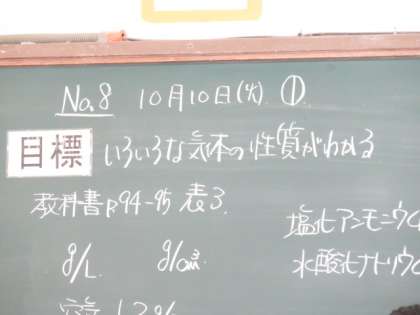 No.8 10月10日(火) ①
目標 いろいろな気体の性質がわかる
教科書P.94-95 表3.
塩化アンモニウム
g/L g/cm³
水酸化ナトリウム